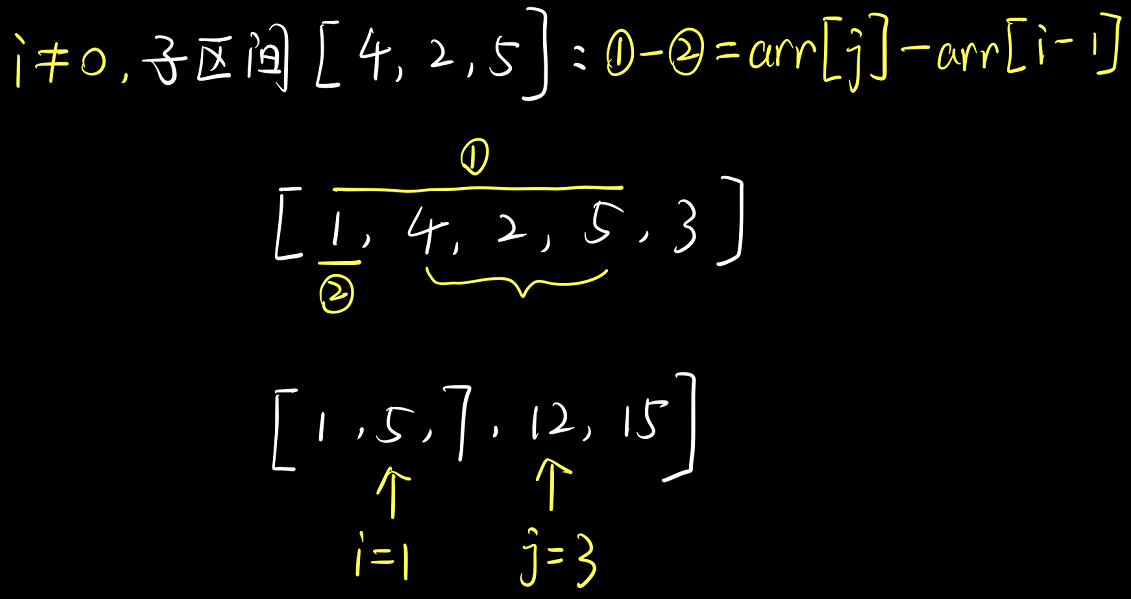 i≠0, 子区间 [4, 2, 5]: ①-②=arr[j]-arr[i-1]
①
[1, 4, 2, 5, 3]
②
[1, 5, 7, 12, 15]
i=1 j=3